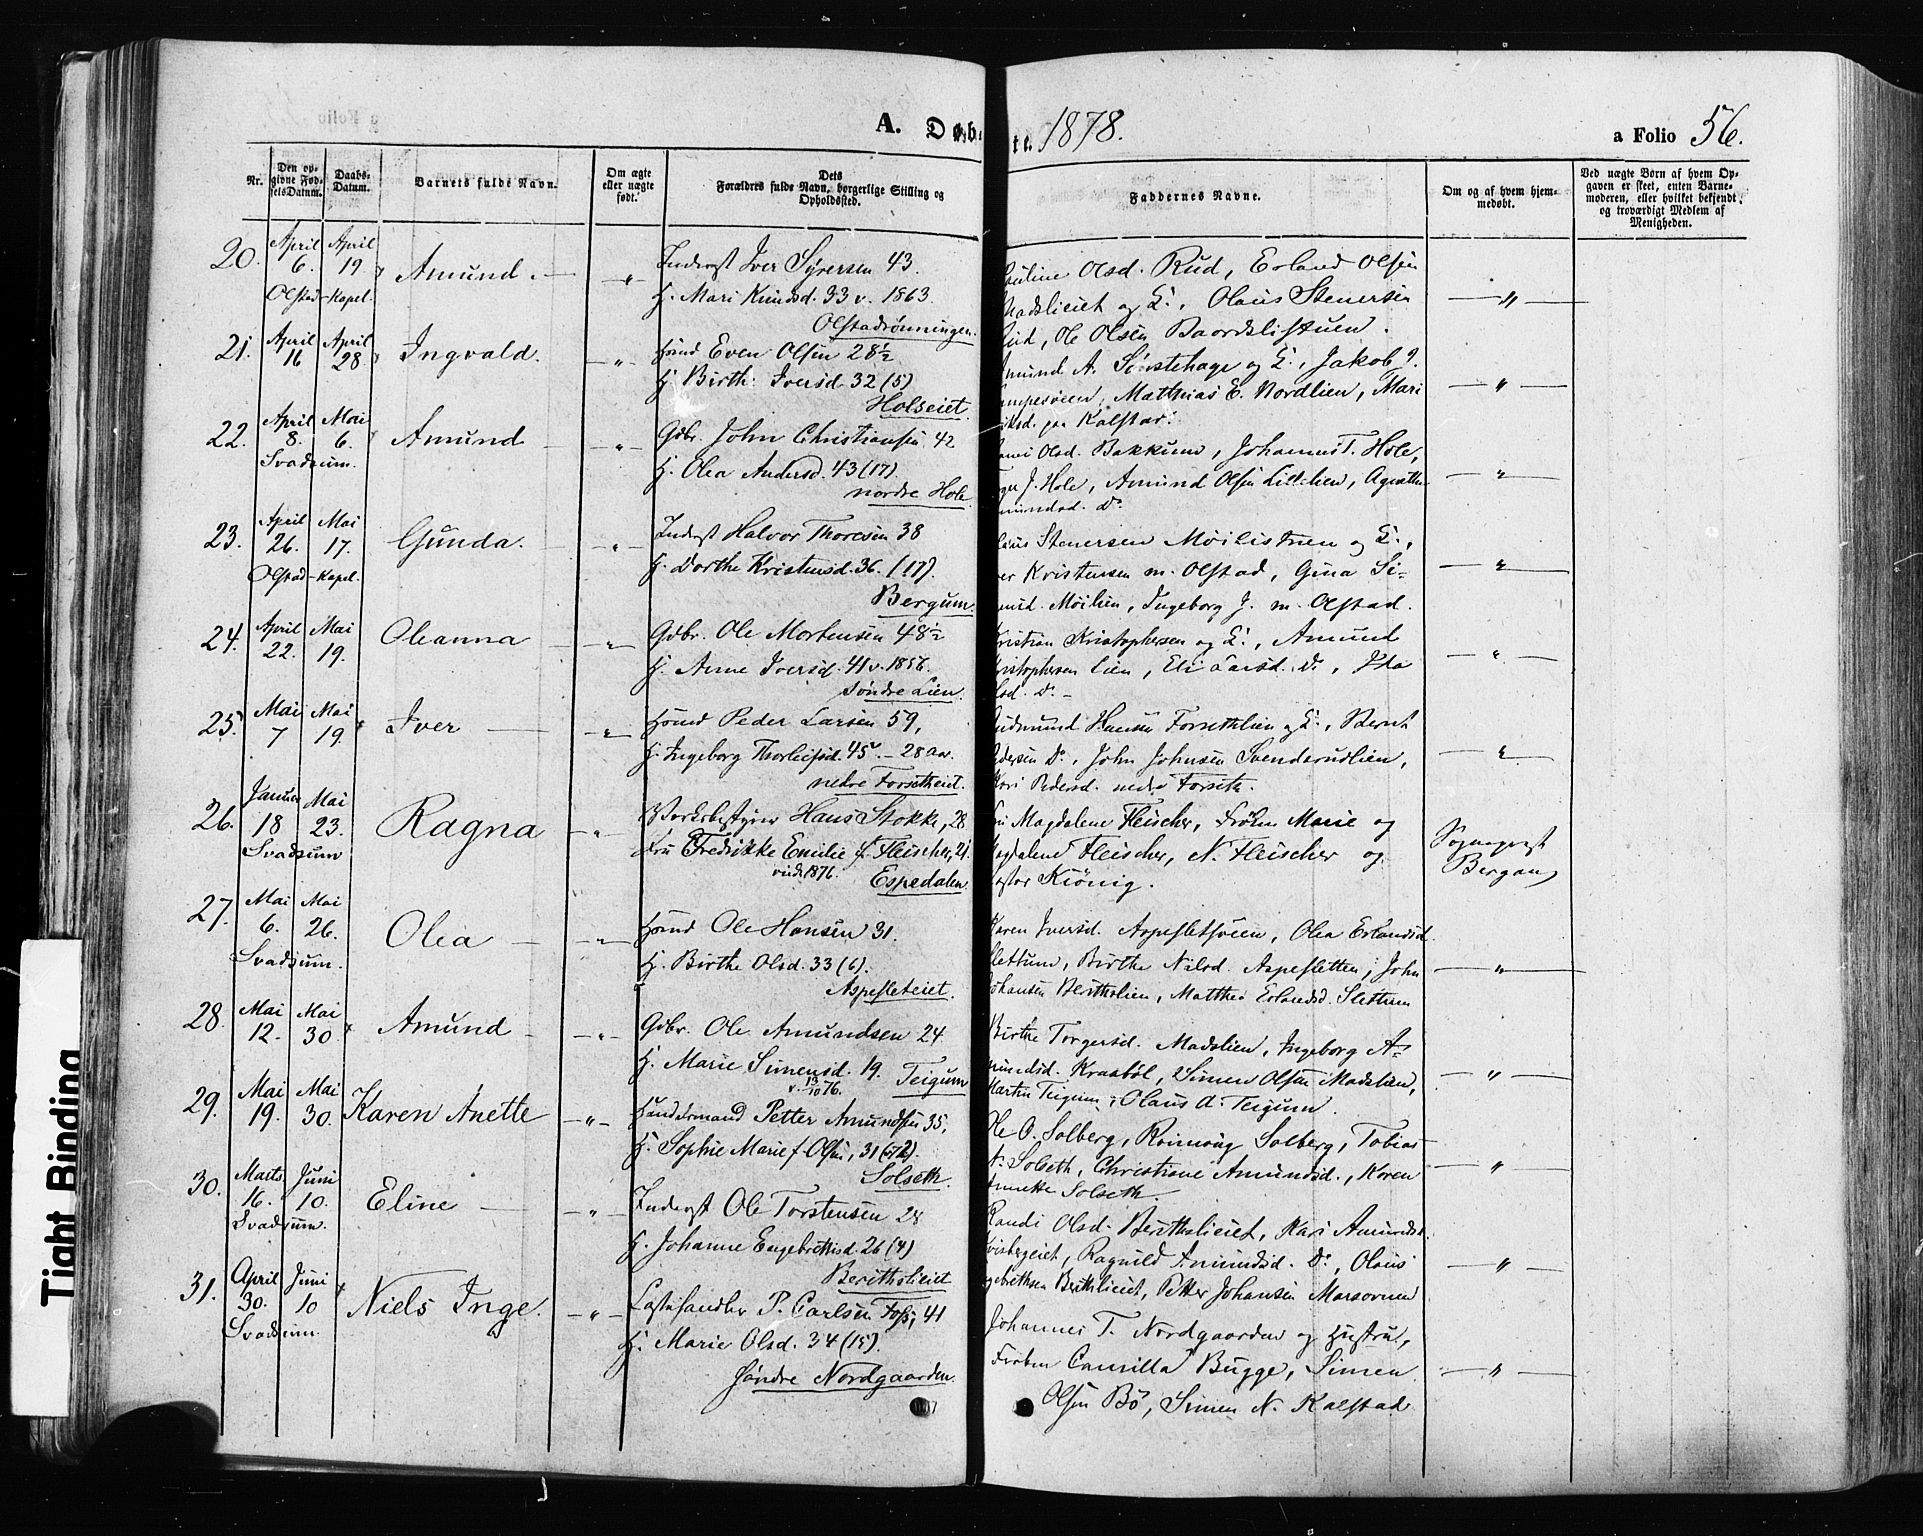 A. Døb
te. 1878.
a Folio 56.
Nr.
Den opgivne FødselsDatum.
Daabs-Datum.
Barnets fulde Navn.
Om ægte eller uægte født.
Dets Forældres fulde Navn, borgerlige Stilling og Opholdssted.
Faddernes Navne.
Om og af hvem hjemmedøbt.
Ved uægte Børn af hvem Opgaven er skeet, enten Barnemoderen, eller hvilket bekjendt og troværdigt Medlem af Menigheden.
20. April 6. April 19 Amund. — „ Inderst Iver Syversen 43.
Olstad-Kapel H. Mari Knudsd. 33 v. 1863.
Olstadrønningen.
Olsd. Rud, Erland Olsen
og H., Olaus Stenersen
Ole Olsen Baardslistuen. — „ —
21. April 16 April 28 Ingvald. — „ — Hsmd Even Olsen 28½
H. Birth. Iversd. 32 (5)
Holseiet.
A. Sørstehage og H., Jakob
Matthias E. Nordlien, Mari
paa Kalstad. — „ —
22. April 8. Mai 6. Amund — „ — Gdbr. John Christiansen 42
Svadsum. H. Olea Andersd. 43 (17)
nordre Hole
Olsd. Bakkum, Johannes T. Hole,
J. Hole, Amund Olsen Lillelien, Agnethe
Do — „ —
23. April 26. Mai 17. Gunda. — „ — Inderst Halvor Thoresen 38
Olstad-Kapel. H. Dorthe Kristensd. 36. (17).
Bergum.
Stenersen Møilistuen og H.,
Kristensen m. Olstad, Gina Si-
Møilien, Ingeborg J. m. Olstad. — „ —
24. April 22. Mai 19. Oleanna — „ — Gdbr. Ole Mortensen 48½
H. Anne Iversd. 41 v. 1856.
søndre Lien.
Kristian Kristophersen og H., Amund
Lien, Eli Larsd. Do, Ida
Do — „ —
25. Mai 7 Mai 19. Iver — „ — Hsmd Peder Larsen 59,
H. Ingeborg Thorleifsd. 45. — 28 Aar.
nedre Forsetheiet.
Gudmund Hansen Forsethlien og H., Bernt
Pedersen Do, John Johnsen Svenderudlien,
Mari Pedersd. nedre Forseth. — „ —
26. Januar 18 Mai 23. Ragna — „ Værksbestyrer Hans Stokke, 28
Svadsum Fru Fredrikke Emilie f. Fleischer, 21.
viet 1876. Espedalen
Fru Magdalene Fleischer, Frøkn Marie og
Magdalene Fleischer, N. Fleischer og
Pastor Kiönig. Sogneprest
Bergan
27. Mai 6. Mai 26. Olea — „ — Hsmd Ole Hansen 31.
Svadsum. H. Birthe Olsd. 33 (6).
Aspesleteiet.
Karen Iversd. Aspesletsveen, Olea Erlandsd.
Slettum, Birthe Nilsd. Aspesletten, John
Johansen Beritholien, Matthea Erlandsd. Slettum — „ —
28. Mai 12. Mai 30. Amund — „ — Gdbr. Ole Amundsen 24
H. Marie Simensd. 19. Teigum
v. 13/10 76.
Birthe Torgersd. Madslien, Ingeborg A-
mundsd. Kraabøl, Simen Olsen Madslien,
Martin Teigum, Olaus A. Teigum. — „ —
29. Mai 19. Mai 30. Karen Anette — „ — Handelsmand Petter Amundsen 35,
H. Sophie Marie f. Olsen, 31
Solseth.
Ole O. Solberg, Solberg, Tobias
A. Solseth, Christiane Amundsd., Karen
Annette Solseth. — „ —
30. Marts 16. Juni 10. Eline — „ — Inderst Ole Torstensen 28
Svadsum. H. Johanne Engebretsd. 26 (4)
Beritholieiet
Randi Olsd. Beritholieiet, Kari Amundsd.
Ragnild Amundsd. Do, Olaus
Beritholieiet, Petter Johansen Marsoveen — „ —
31. April 30. Juni 10 Niels Inge. — „ — Lastehandler P. Carlsen Foss, 41
Svadsum. H. Marie Olsd. 34 (15).
søndre Nordgaarden.
Johannes T. Nordgaarden og Hustru,
Frøken Camilla Bugge, Simen
Olsen Bö, Simen N. Kalstad — „ —
Tight Binding